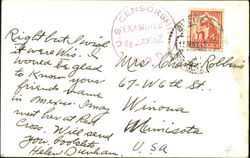 U.S. CENSORSHIP
EXAMINED
By
Right but I wish
it were Wis. I
would be glad
to know your
friends name
in Mexico. I may
meet her at Red
Cross. Will send
you booklets
Helen Dunham.
Mrs. Charles Robbins
67-W 6th St.
Winona
Minnisota
U.S.A